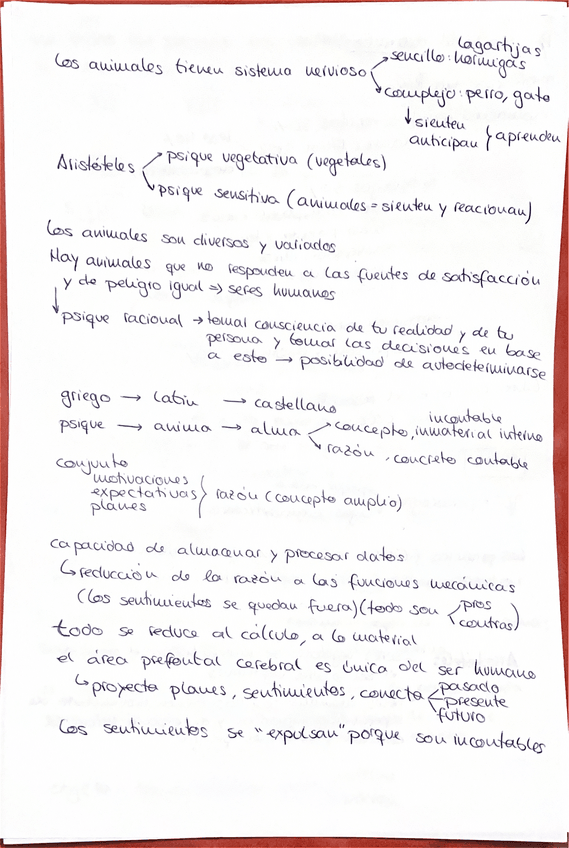 lagartijas
Los animales tienen sistema nervioso sencillo: hormigas
complejo: perro, gato
↓ sienten
anticipan } aprenden
Aristóteles psique vegetativa (vegetales)
psique sensitiva (animales = sienten y reacionan)
Los animales son diversos y variados
Hay animales que no responden a las fuentes de satisfacción
y de peligro igual => seres humanos
psique racional → tomar consciencia de tu realidad y de tu
persona y tomar las decisiones en base
a esto → posibilidad de autodeterminarse
griego → latín → castellano
incontable
psique → anima → alma concepto, inmaterial interno
razón, concreto contable
conjunto
motivaciones
expectativas } razón (concepto amplio)
planes
capacidad de almacenar y procesar datos
↳ reducción de la razón a las funciones mecánicas
(los sentimientos se quedan fuera) (todo son pros
contras)
todo se reduce al cálculo, a lo material
el área prefrontal cerebral es única del ser humano
↳ proyecta planes, sentimientos, conecta pasado
presente
futuro
Los sentimientos se "expulsan" porque son incontables